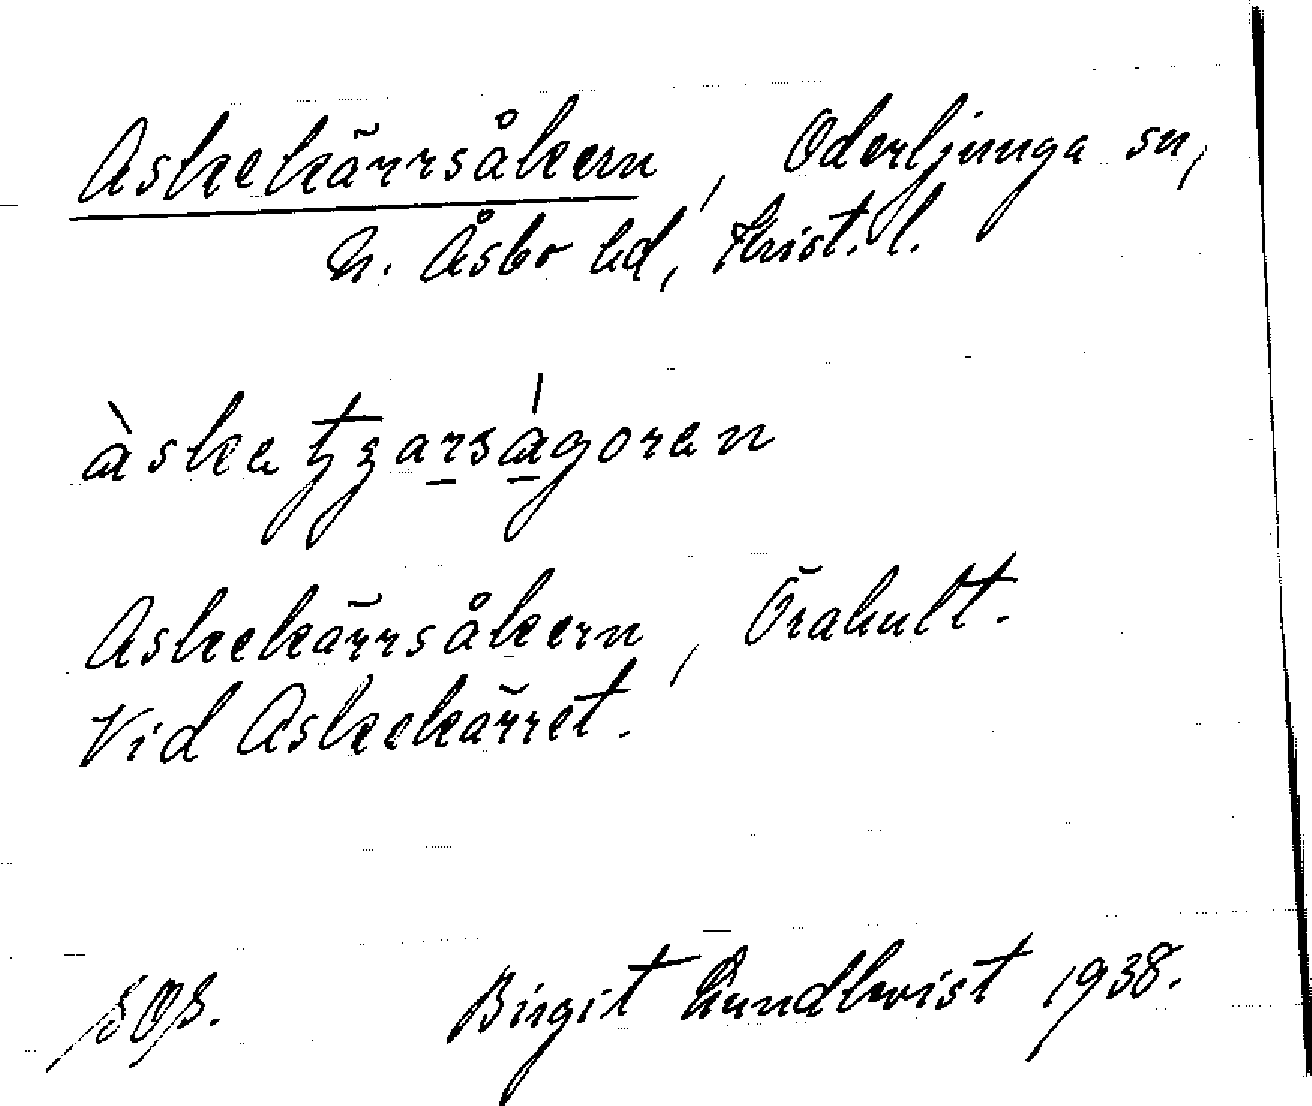 Askekärrsåkern, Oderljunga sn,
N. Åsbo hd, Krist. l.
àskatʒarságoran
Askekärrsåkern, Örahult.
Vid Askekärret.
Birgit Lundkvist 1938.